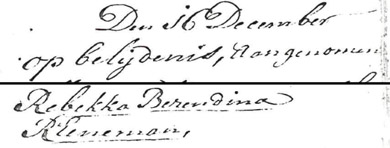 Den 16 December
op belijdenis, Aangenomen
Rebekka Berendina
Kleneman,